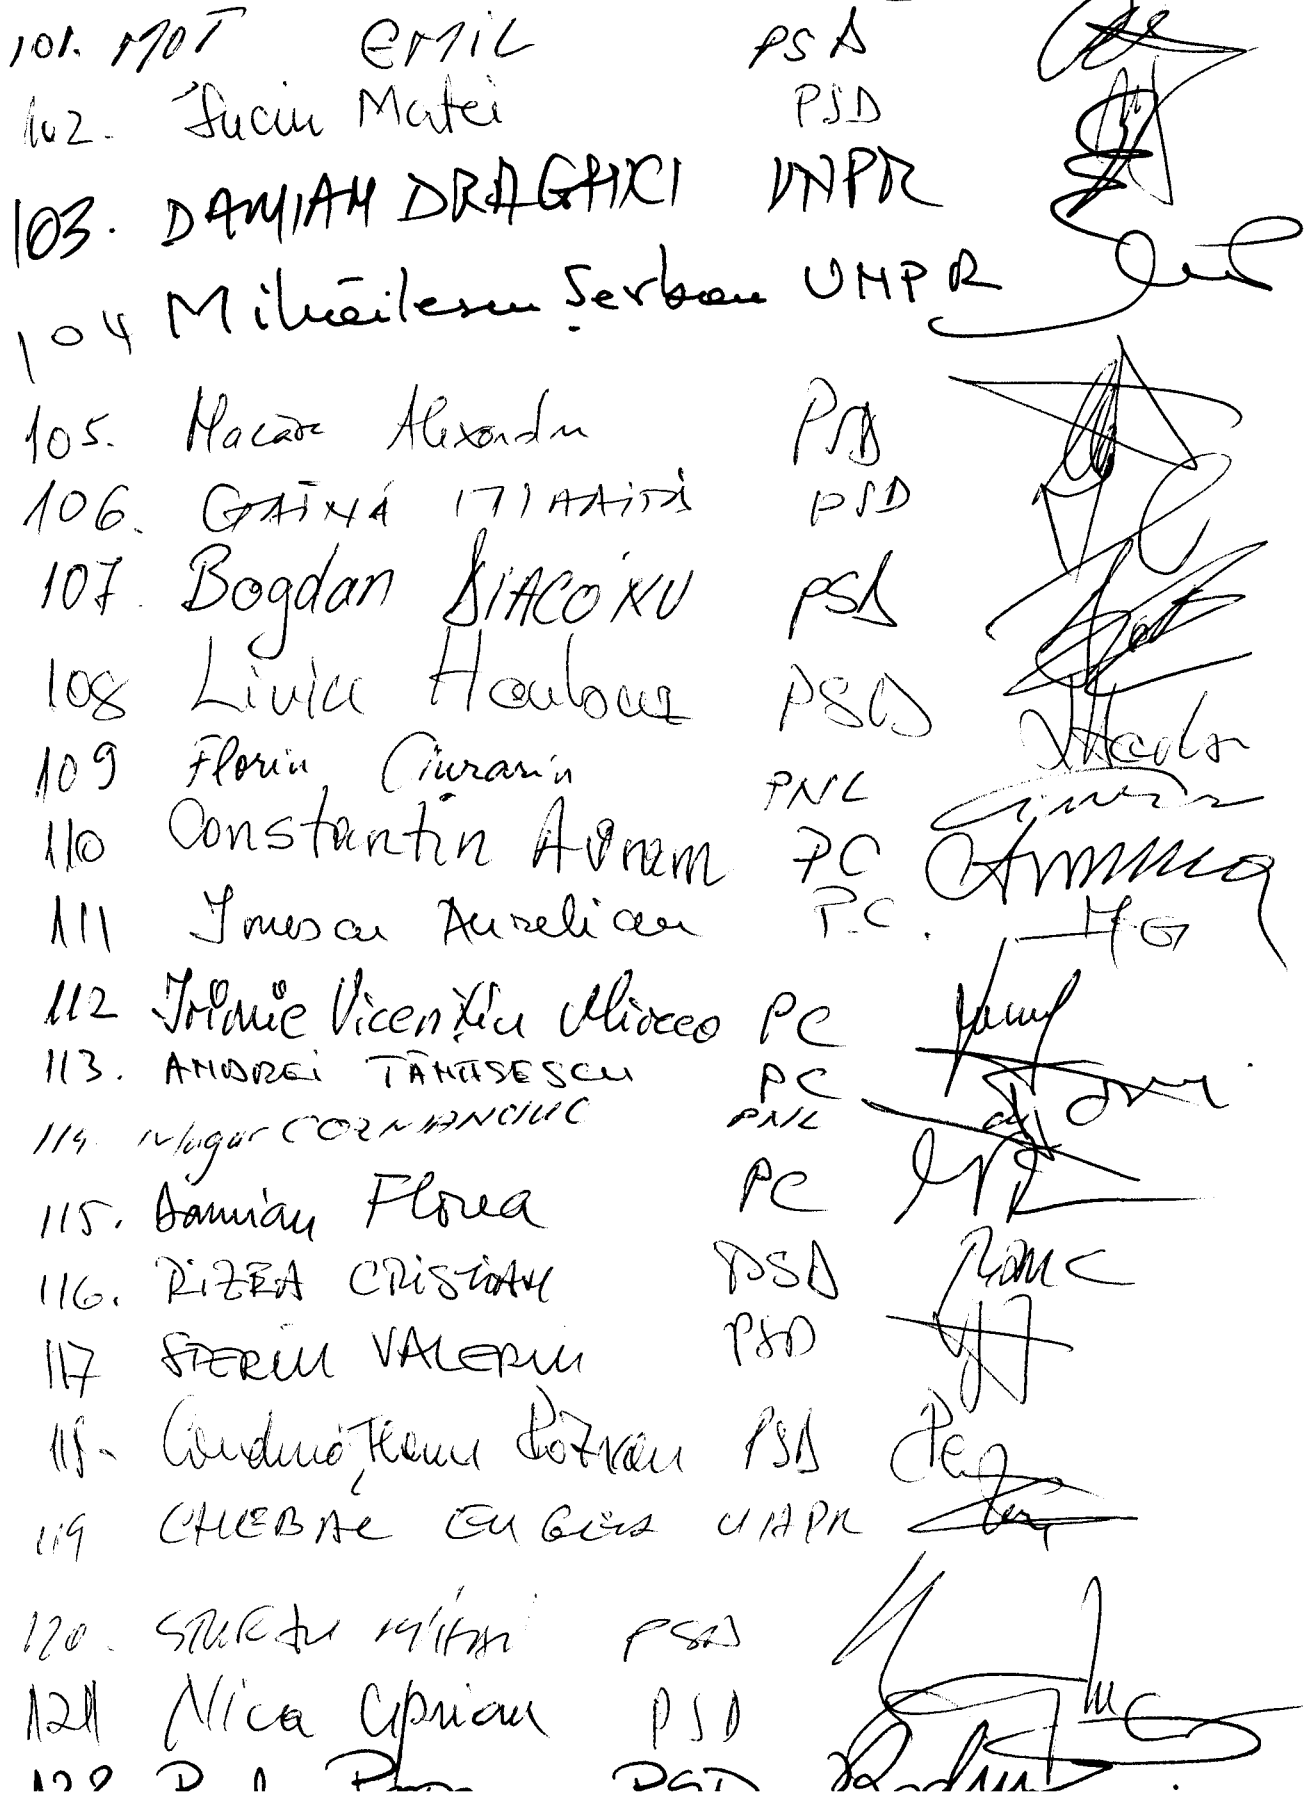 101. MOT EMIL PSD
102. Suciu Matei PSD
103. DAMIAN DRAGHICI UNPR
104 Mihăilescu Șerban UNPR
105. Macare Alexandru PSD
106. GAINĂ PSD
107. Bogdan DIACONU PSD
108 Liviu Harbuz PSD
109 Florin Ciurariu PNL
110 Constantin Avram PC
111 Ionescu Aurelian P.C.
112 Irimie Vicențiu Mircea PC
113. ANDREI TĂNĂSESCU PC
114. Mugur COZMANCIUC PNL
115. Damian Florea PC
116. RIZEA CRISTIAN PSD
117 STERIU VALERIU PSD
118. Condurățeanu Răzvan PSD
119 CHEBAC EUGEN UNPR
120. STEFAN MIHAI PSD
121 Nica Ciprian PSD